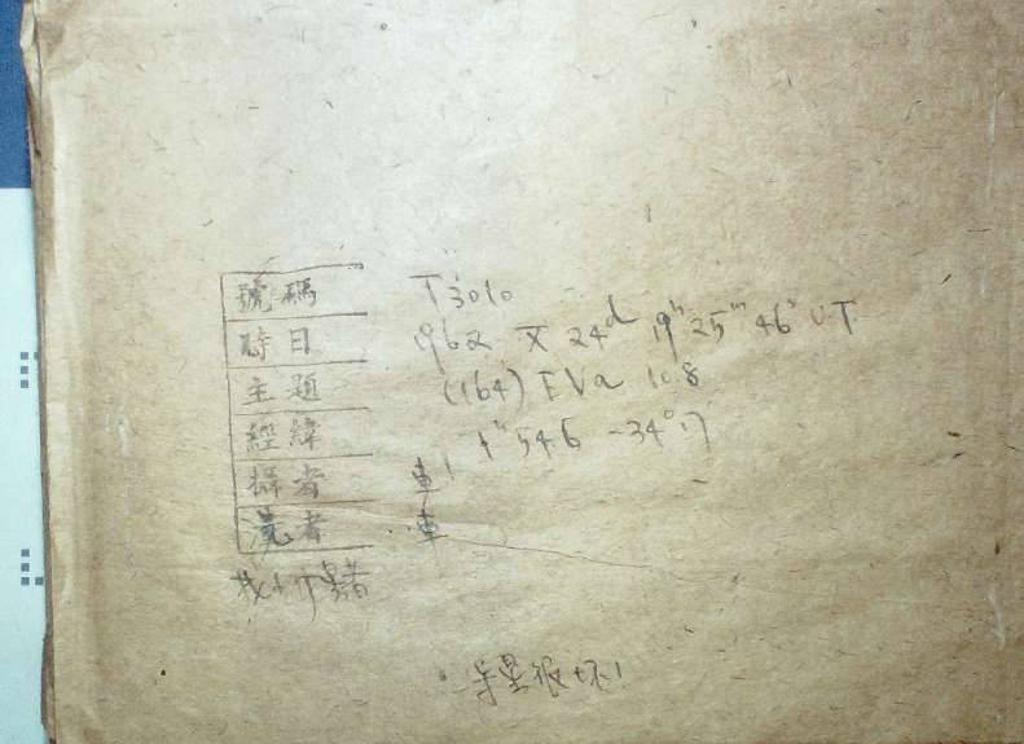 號碼 T3010
時日 1962 X 24d 19h 25m 46s U.T.
主題 (164) EVa 10.8
經緯 1h 54.6 -34°.7
攝者 車
洗者 車
導星很坏!